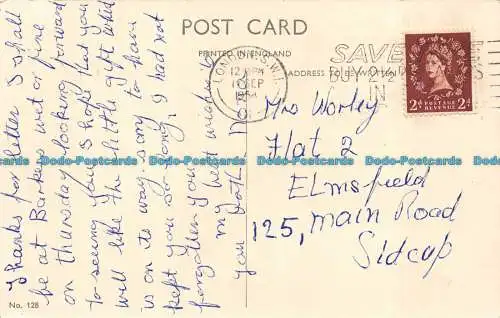 POST CARD
PRINTED IN ENGLAND
ADDRESS TO BE WRITTEN
LONDON. S.W.1
12
SEP
SAVE
IN
POSTAGE
REVENUE
2d 2d
Mrs Worley
Flat 2
Elmsfield
125, Main Road
Sidcup
Thanks for letter I shall
be at Barkers wet or fine
on thursday looking forward
to seeing you. I hope that you
will like the little gift which
is on its way. sorry to have
kept you so long, I had not
forgotten you.
my best wishes to
you both
No. 128
Dodo-Postcards Dodo-Postcards Dodo-Postcards Dodo-Postcards